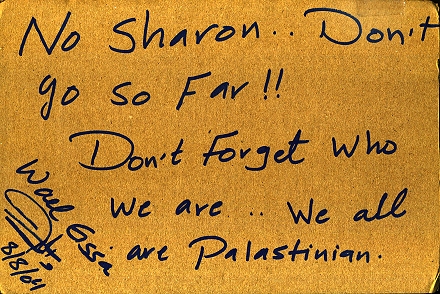 No Sharon.. Don't
go so Far!!
Don't Forget who
we are .. We all
are Palastinian.
Wael Essa
8/8/04